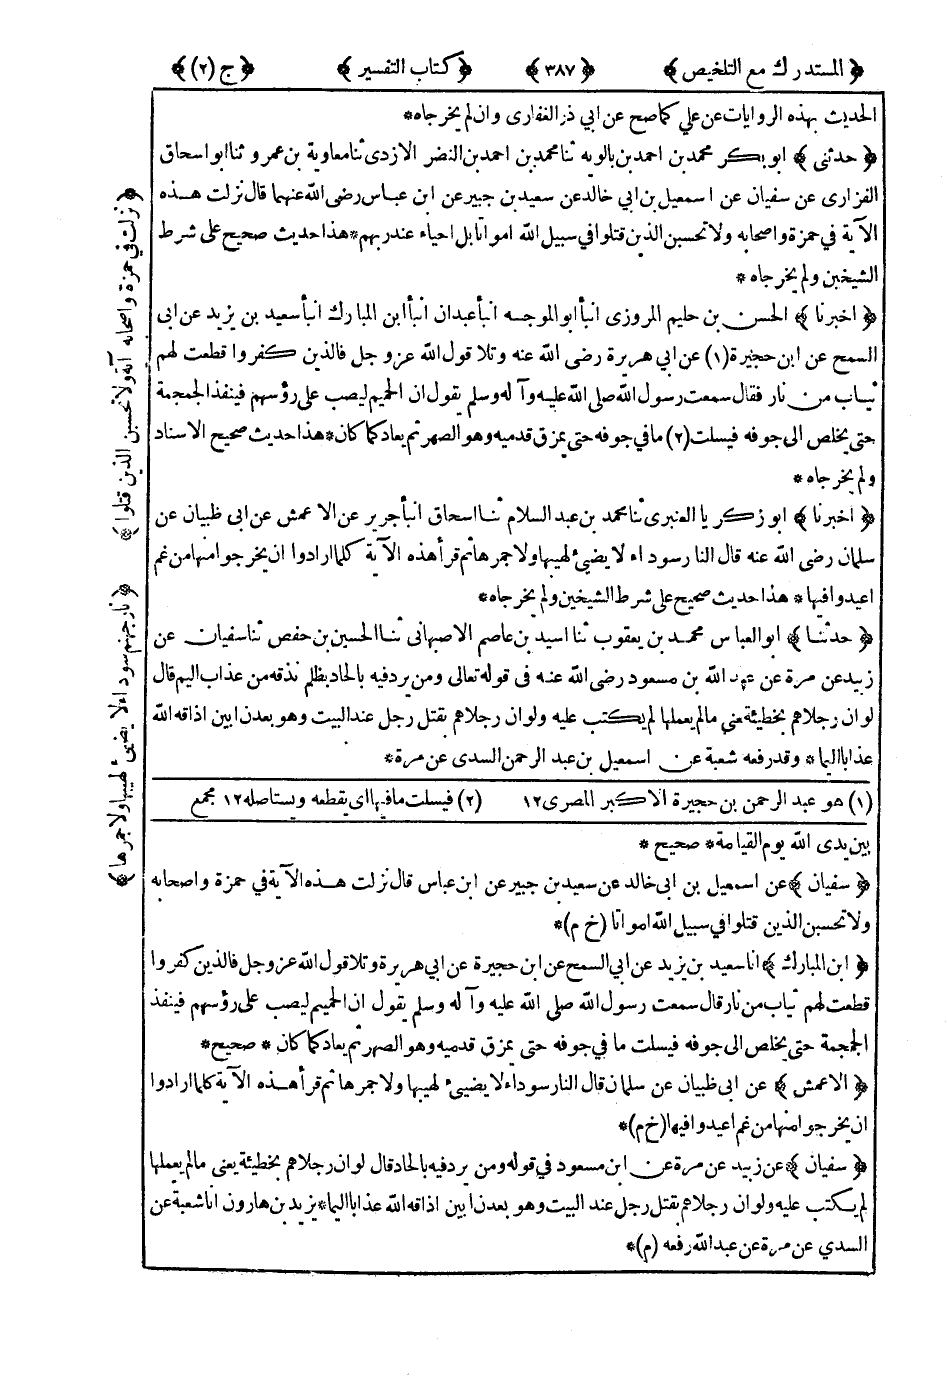 ﴿ المستدرك مع التلخيص ﴾ ﴿ ٣٨٧ ﴾ ﴿ كتاب التفسير ﴾ ﴿ ج (٢) ﴾
الحديث بهذه الروايات عن علي كما صح عن ابي ذر الغفارى وان لم يخرجاه*
﴿ حدثنى ﴾ ابو بكر محمد بن احمد بن بالويه ثنا محمد بن احمد بن النضر الازدى ثنا معاوية بن عمرو ثنا ابو اسحاق
الفزارى عن سفيان عن اسمعيل بن ابي خالد عن سعيد بن جبير عن ابن عباس رضى الله عنهما قال نزلت هذه
الآية في حمزة واصحابه ولا تحسبن الذين قتلوا في سبيل الله امواتا بل احياء عند ربهم*هذا حديث صحيح على شرط
الشيخين ولم يخرجاه *
﴿ اخبرنا ﴾ الحسن بن حليم المروزى انبأ ابو الموجه انبأ عبدان انبأ ابن المبارك انبأ سعيد بن يزيد عن ابى
السمح عن ابن حجيرة (١) عن ابي هريرة رضى الله عنه وتلا قول الله عز و جل فالذين كفروا قطعت لهم
ثياب من نار فقال سمعت رسول الله صلى الله عليه وآله وسلم يقول ان الحميم ليصب على رؤسهم فينفذ الجمجمة
حتى يخلص الى جوفه فيسلت (٢) ما في جوفه حتى يمزق قدميه وهو الصهر ثم يعاد كما كان*هذا حديث صحيح الاسناد
ولم يخرجاه *
﴿ اخبرنا ﴾ ابو زكريا العنبرى ثنا محمد بن عبد السلام ثنا اسحاق انبأ جرير عن الاعمش عن ابى ظبيان عن
سلمان رضى الله عنه قال النار سوداء لا يضيئ لهيبها ولا جمرها ثم قرأ هذه الآية كلما ارادوا ان يخرجوا منها من غم
اعيدوا فيها * هذا حديث صحيح على شرط الشيخين ولم يخرجاه*
﴿ حدثنا ﴾ ابو العباس محمد بن يعقوب ثنا اسيد بن عاصم الاصبهانى ثنا الحسين بن حفص ثنا سفيان عن
زبيد عن مرة عن عبد الله بن مسعود رضى الله عنه فى قوله تعالى ومن يرد فيه بالحاد بظلم نذقه من عذاب اليم قال
لو ان رجلا هم بخطيئة يعني ما لم يعملها لم يكتب عليه ولو ان رجلا هم بقتل رجل عند البيت وهو بعدن ابين اذاقه الله
عذابا اليما * وقد رفعه شعبة عن اسمعيل بن عبد الرحمن السدى عن مرة*
(١) هو عبد الرحمن بن حجيرة الاكبر المصرى ١٢ (٢) فيسلت ما فيها اى يقطعه ويستاصله ١٢ مجمع
بين يدى الله يوم القيامة* صحيح *
﴿ سفيان ﴾ عن اسمعيل بن ابى خالد عن سعيد بن جبير عن ابن عباس قال نزلت هذه الآية في حمزة واصحابه
ولا تحسبن الذين قتلوا في سبيل الله امواتا (خ م)*
﴿ ابن المبارك ﴾ انا سعيد بن يزيد عن ابي السمح عن ابن حجيرة عن ابي هريرة وتلا قول الله عز وجل فالذين كفروا
قطعت لهم ثياب من نار قال سمعت رسول الله صلى الله عليه وآله وسلم يقول ان الحميم ليصب على رؤسهم فينفذ
الجمجمة حتى يخلص الى جوفه فيسلت ما في جوفه حتى يمزق قدميه وهو الصهر ثم يعاد كما كان * صحيح*
﴿ الاعمش ﴾ عن ابى ظبيان عن سلمان قال النار سوداء لا يضيئ لهيبها ولا جمرها ثم قرأ هذه الآية كلما ارادوا
ان يخرجوا منها من غم اعيدوا فيها (خ م)*
﴿ سفيان ﴾ عن زبيد عن مرة عن ابن مسعود في قوله ومن يرد فيه بالحاد قال لو ان رجلا هم بخطيئة يعنى ما لم يعملها
لم يكتب عليه ولو ان رجلا هم بقتل رجل عند البيت وهو بعدن ابين اذاقه الله عذابا اليما*يزيد بن هارون انا شعبة عن
السدي عن مرة عن عبد الله رفعه (م)*
﴿ نزلت في حمزة واصحابه آية ولا تحسبن الذين قتلوا ﴾
﴿ نار جهنم سوداء لا يضيئ لهيبها ولا جمرها ﴾